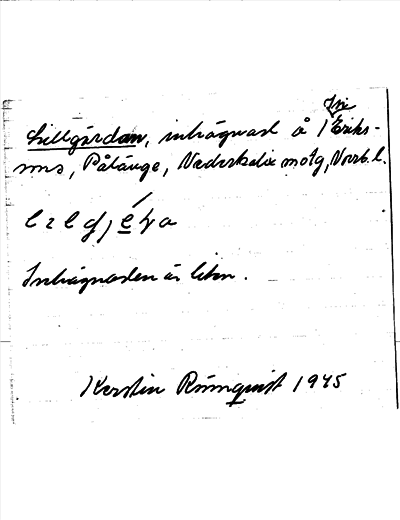 Jni
Lillgärdan, inhägnad å / Eriks-
sons, Pålänge, Nederkalix motg, Norrb. l.
Inhägnaden är liten.
Kerstin Rönnquist 1945